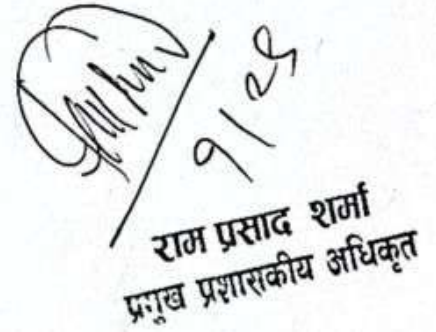 ९/२९
राम प्रसाद शर्मा
प्रमुख प्रशासकीय अधिकृत